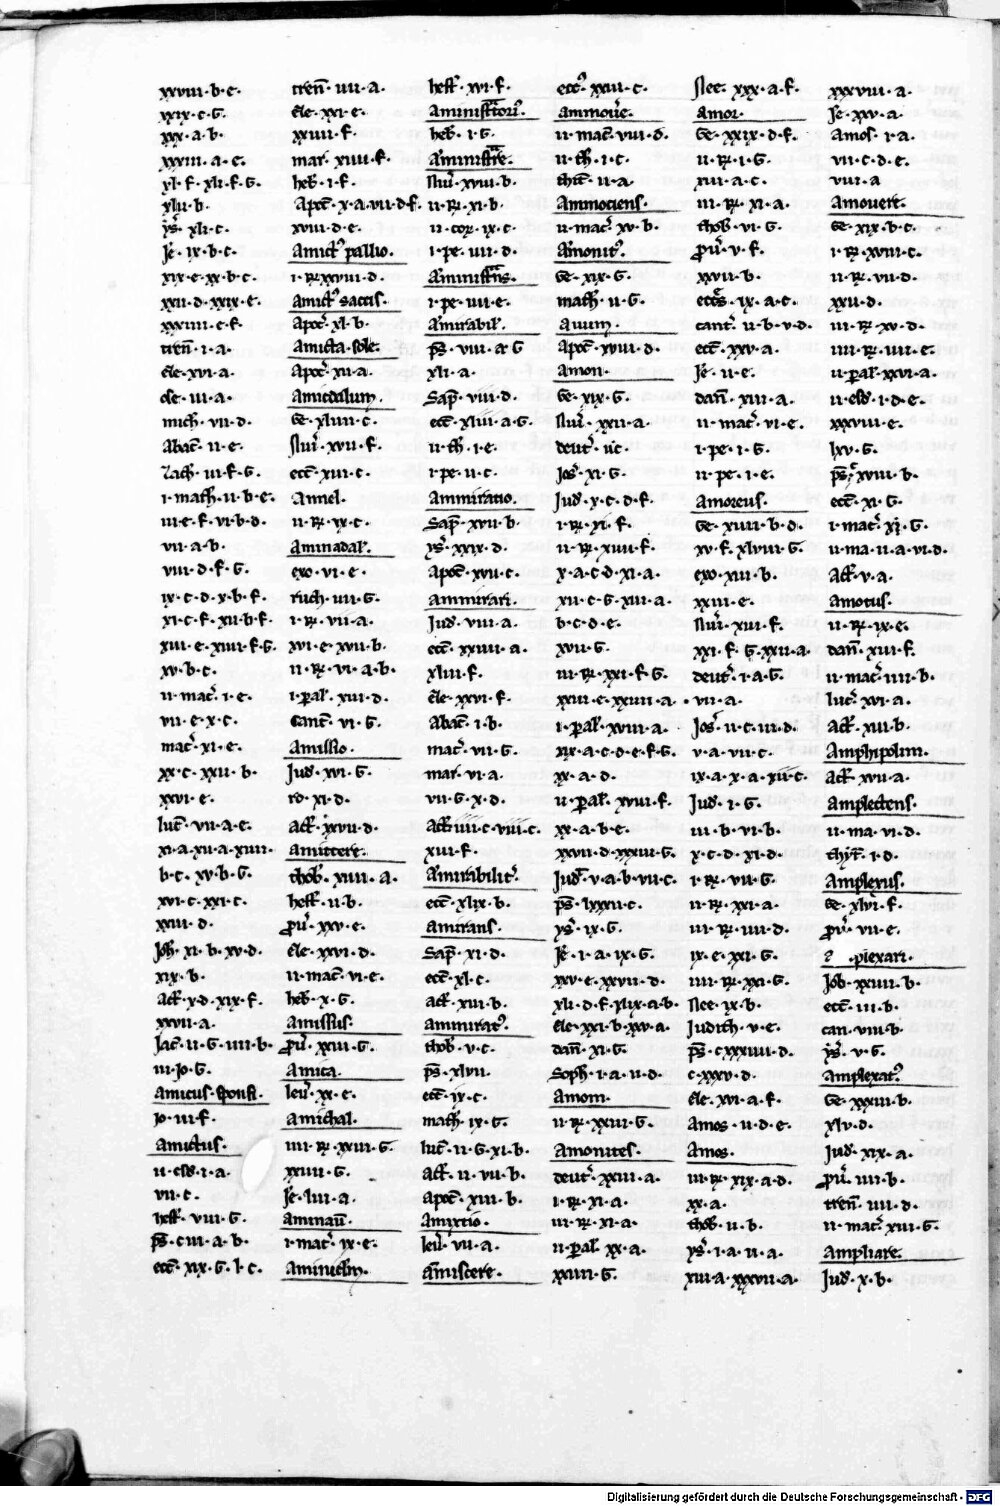 xxviii·b·c·
xxix·c·G·
xxx·a·b·
xxxiii·a·e·
xl·f·xli·f·G·
xlii·b·
ys·xli·c·
Je·ix·b·c·
xix·e·xx·b·c·
xxii·d·xxix·e·
xxxiiii·c·f·
tren̄·i·a·
Ele·xvi·a·
ose·iii·a·
mich·vii·d·
Abac̄·ii·e·
Zach·iii·f·G·
i·mach·ii·b·e·
iii·e·f·vi·b·d·
vii·a·b·
viii·d·f·G·
ix·c·d·x·b·f·
xi·c·f·xii·b·f·
xiii·e·xiiii·f·G·
xv·b·c·
ii·mac̄·i·e·
vii·e·x·c·
mac̄·xi·e·
xx·c·xxii·b·
xxvi·e·
luc̄·vii·a·c·
xi·a·xii·a·xiiii·
b·c·xv·b·G·
xvi·c·xxi·c·
xxiii·d·
Joh·xi·b·xv·d·
xix·b·
act̄·x·d·xix·f·
xxvii·a·
Jac̄·ii·G·iiii·b·
iii·Jo·G·
amicus·sponsi·
Jo·iii·f·
amictus·
ii·esd̄·i·a·
vii·c·
hest̄·viii·G·
ps̄·ciii·a·b·
ecc̄·xix·G·l·c·
tren̄·iiii·a·
Ele·xxi·e·
xxiiii·f·
mar·xiiii·f·
heb̄·i·f·
Apoc̄·x·a·vii·d·f·
xviii·d·e·
Amict⁹ pallio·
i·R̄·xxviii·d·
Amict⁹ saccis·
Apoc̄·xi·b·
Amicta·sole·
Apoc̄·xii·a·
Amicdalum·
Ge·xliii·c·
Nuī·xvii·f·
ecc̄·xii·c·
Amiel·
ii·R̄·ix·c·
Aminadab·
exo·vi·e·
ruth·iiii·G·
i·R̄·vii·a·
xvi·e·xvii·b·
ii·R̄·vi·a·b·
i·pal̄·xiii·d·
Cant̄·vi·G·
Amissio·
Jud̄·xvi·G·
ro·xi·d·
act̄·xxvii·d·
amittere·
thob̄·xiiii·a·
hest̄·ii·b·
pū·xxv·e·
Ele·xxvi·d·
ii·mac̄·vi·e·
heb̄·x·G·
amissus·
pū·xxiii·G·
amica·
leū·xx·c·
amichal·
iiii·R̄·xxiii·G·
xxiiii·G·
Je·liii·a·
aminaū·
i·mac̄·ix·e·
hest̄·xvi·f·
heb̄·i·G·
Nuī·xviii·b·
ii·R̄·xi·b·
ii·cor·ix·c·
i·pe·iiii·d·
i·pe·iiii·e·
Amirabil̄·
ps̄·viii·a·G
xli·a·
Sap̄·viii·d·
ecc̄·xliii·a·G·
ii·th·i·e·
i·pe·ii·c·
Ammiratio·
Sap̄·xvii·b·
ys·xxix·d·
apoc̄·xvii·c·
ammirari·
Jud̄·viii·a·
ecc̄·xxiiii·a·
xliii·f·
Ele·xxvi·f·
Abac̄·i·b·
mac̄·vii·G·
mar·vi·a·
vii·G·x·d·
act̄·iiii·c·viii·c·
xiii·f·
ecc̄·xlix·b·
amirans·
Sap̄·xi·d·
ecc̄·xl·c·
act̄·xiii·b·
ammirat⁹·
thob̄·v·c·
ps̄·xlvii·
ecc̄·ix·c·
math·ix·G·
luc̄·ii·G·xi·b·
act̄·ii·vii·b·
apoc̄·xiii·b·
Amixtio·
leū·vii·a·
amiscere·
ecc⁹·xxiii·c·
ammouere·
ii·mac̄·viii·d·
ii·th·i·c·
thit̄·ii·a·
Ammociens·
ii·mac̄·xv·b·
Amonit⁹·
Ge·xix·G·
math·ii·G·
auum·
Apoc̄·xviii·d·
Amon·
Ge·xix·G·
Nuī·xxi·a·
deut̄·ii·c·
Jos·xi·G·
Jud̄·x·c·d·f·
i·R̄·xi·f·
ii·R̄·xiii·f·
x·a·c·d·xi·a·
xii·c·G·xiii·a·
b·c·d·e·
xvii·G·
iii·R̄·xxi·f·G·
xxiii·e·xxiiii·a·
i·pal̄·xviii·a·
xix·a·c·d·e·f·G·
xx·a·d·
ii·pal̄·xviii·f·
xx·a·b·e·
xxvii·d·xxxiii·G·
Jud̄·v·a·b·vii·c·
ps̄·lxxxii·c·
ys·ix·G·
Je·i·a·ix·G·
xxv·e·xxvii·d·
xli·d·f·xlix·a·b·
Ele·xxi·b·xxv·a·
dan̄·xi·G·
Soph·i·a·ii·d·
Amom·
ii·R̄·xxiii·G·
Amonites·
deut̄·xxiii·a·
i·R̄·xi·a·
iii·R̄·xi·a·
ii·pal̄·xx·a·
xxiiii·G·
Nee·xxx·a·f·
amor·
Ge·xxix·d·f·
ii·R̄·i·G·
xiii·a·c·
iii·R̄·xi·a·
thob̄·vi·G·
pū·v·f·
xxvii·b·
ecc̄s·ix·a·c·
cant̄·ii·b·v·d·
ecc̄·xxv·a·
Je·ii·e·
dan̄·xiii·a·
ii·mac̄·vi·e·
i·pe·i·G·
ii·pe·i·e·
Amoreus·
Ge·xiiii·b·d·
xv·f·xlviii·G·
exo·xiii·b·
xxiii·e·
Nuī·xiii·f·
xxi·f·G·xxii·a·
deut̄·i·a·G·
vii·a·
Jos·ii·c·iii·d·
v·a·vii·c·
ix·a·x·a·xii·c·
Jud̄·i·G·
iii·b·vi·b·
x·c·d·xi·d·
i·R̄·vii·G·
ii·R̄·xxi·a·
iii·R̄·iiii·d·
ix·e·xxi·G·
iiii·R̄·xxi·G·
Nee·ix·b·
Judith·v·e·
ps̄·cxxxiiii·d·
c·xxxv·d·
Ele·xvi·a·f·
Amos·ii·d·e·
Amos·
iii·R̄·xix·a·d·
xx·a·
thob̄·ii·b·
ys·i·a·ii·a·
xiii·a·xxxvii·a·
xxxviii·a·
Je·xv·a·
Amos·i·a·
vii·c·d·e·
viii·a
Amouere·
Ge·xix·b·c·
i·R̄·xviii·c·
ii·R̄·vii·d·
xxii·d·
iii·R̄·xv·d·
iiii·R̄·iiii·e·
ii·pal̄·xxvi·a·
ii·esd̄·i·d·e·
xxxviii·e·
lxv·G·
ps̄·xviii·b·
ecc̄·xi·G·
i·mac̄·xi·G·
ii·ma·ii·a·vi·d·
Act̄·v·a·
Amotus·
ii·R̄·ix·e·
dan̄·xiii·f·
ii·mac̄·iiii·b·
luc̄·xvi·a·
Act̄·xiii·b·
Amphipolim·
Act̄·xvii·a·
Amplectens·
ii·ma·vi·d·
thȳ·i·d·
Amplexus·
Ge·xlvi·f·
pū·vii·e·
plexari·
Job·xxiiii·b·
ecc̄·iii·b·
can·viii·b·
ys·v·G·
Amplexat⁹·
Ge·xxxiii·b·
xlv·d·
Jud̄·xix·a·
pū·iiii·b·
tren̄·iiii·d·
ii·mac̄·xiii·G·
Ampliare·
Jud̄·x·b·
Digitalisierung gefördert durch die Deutsche Forschungsgemeinschaft - DFG